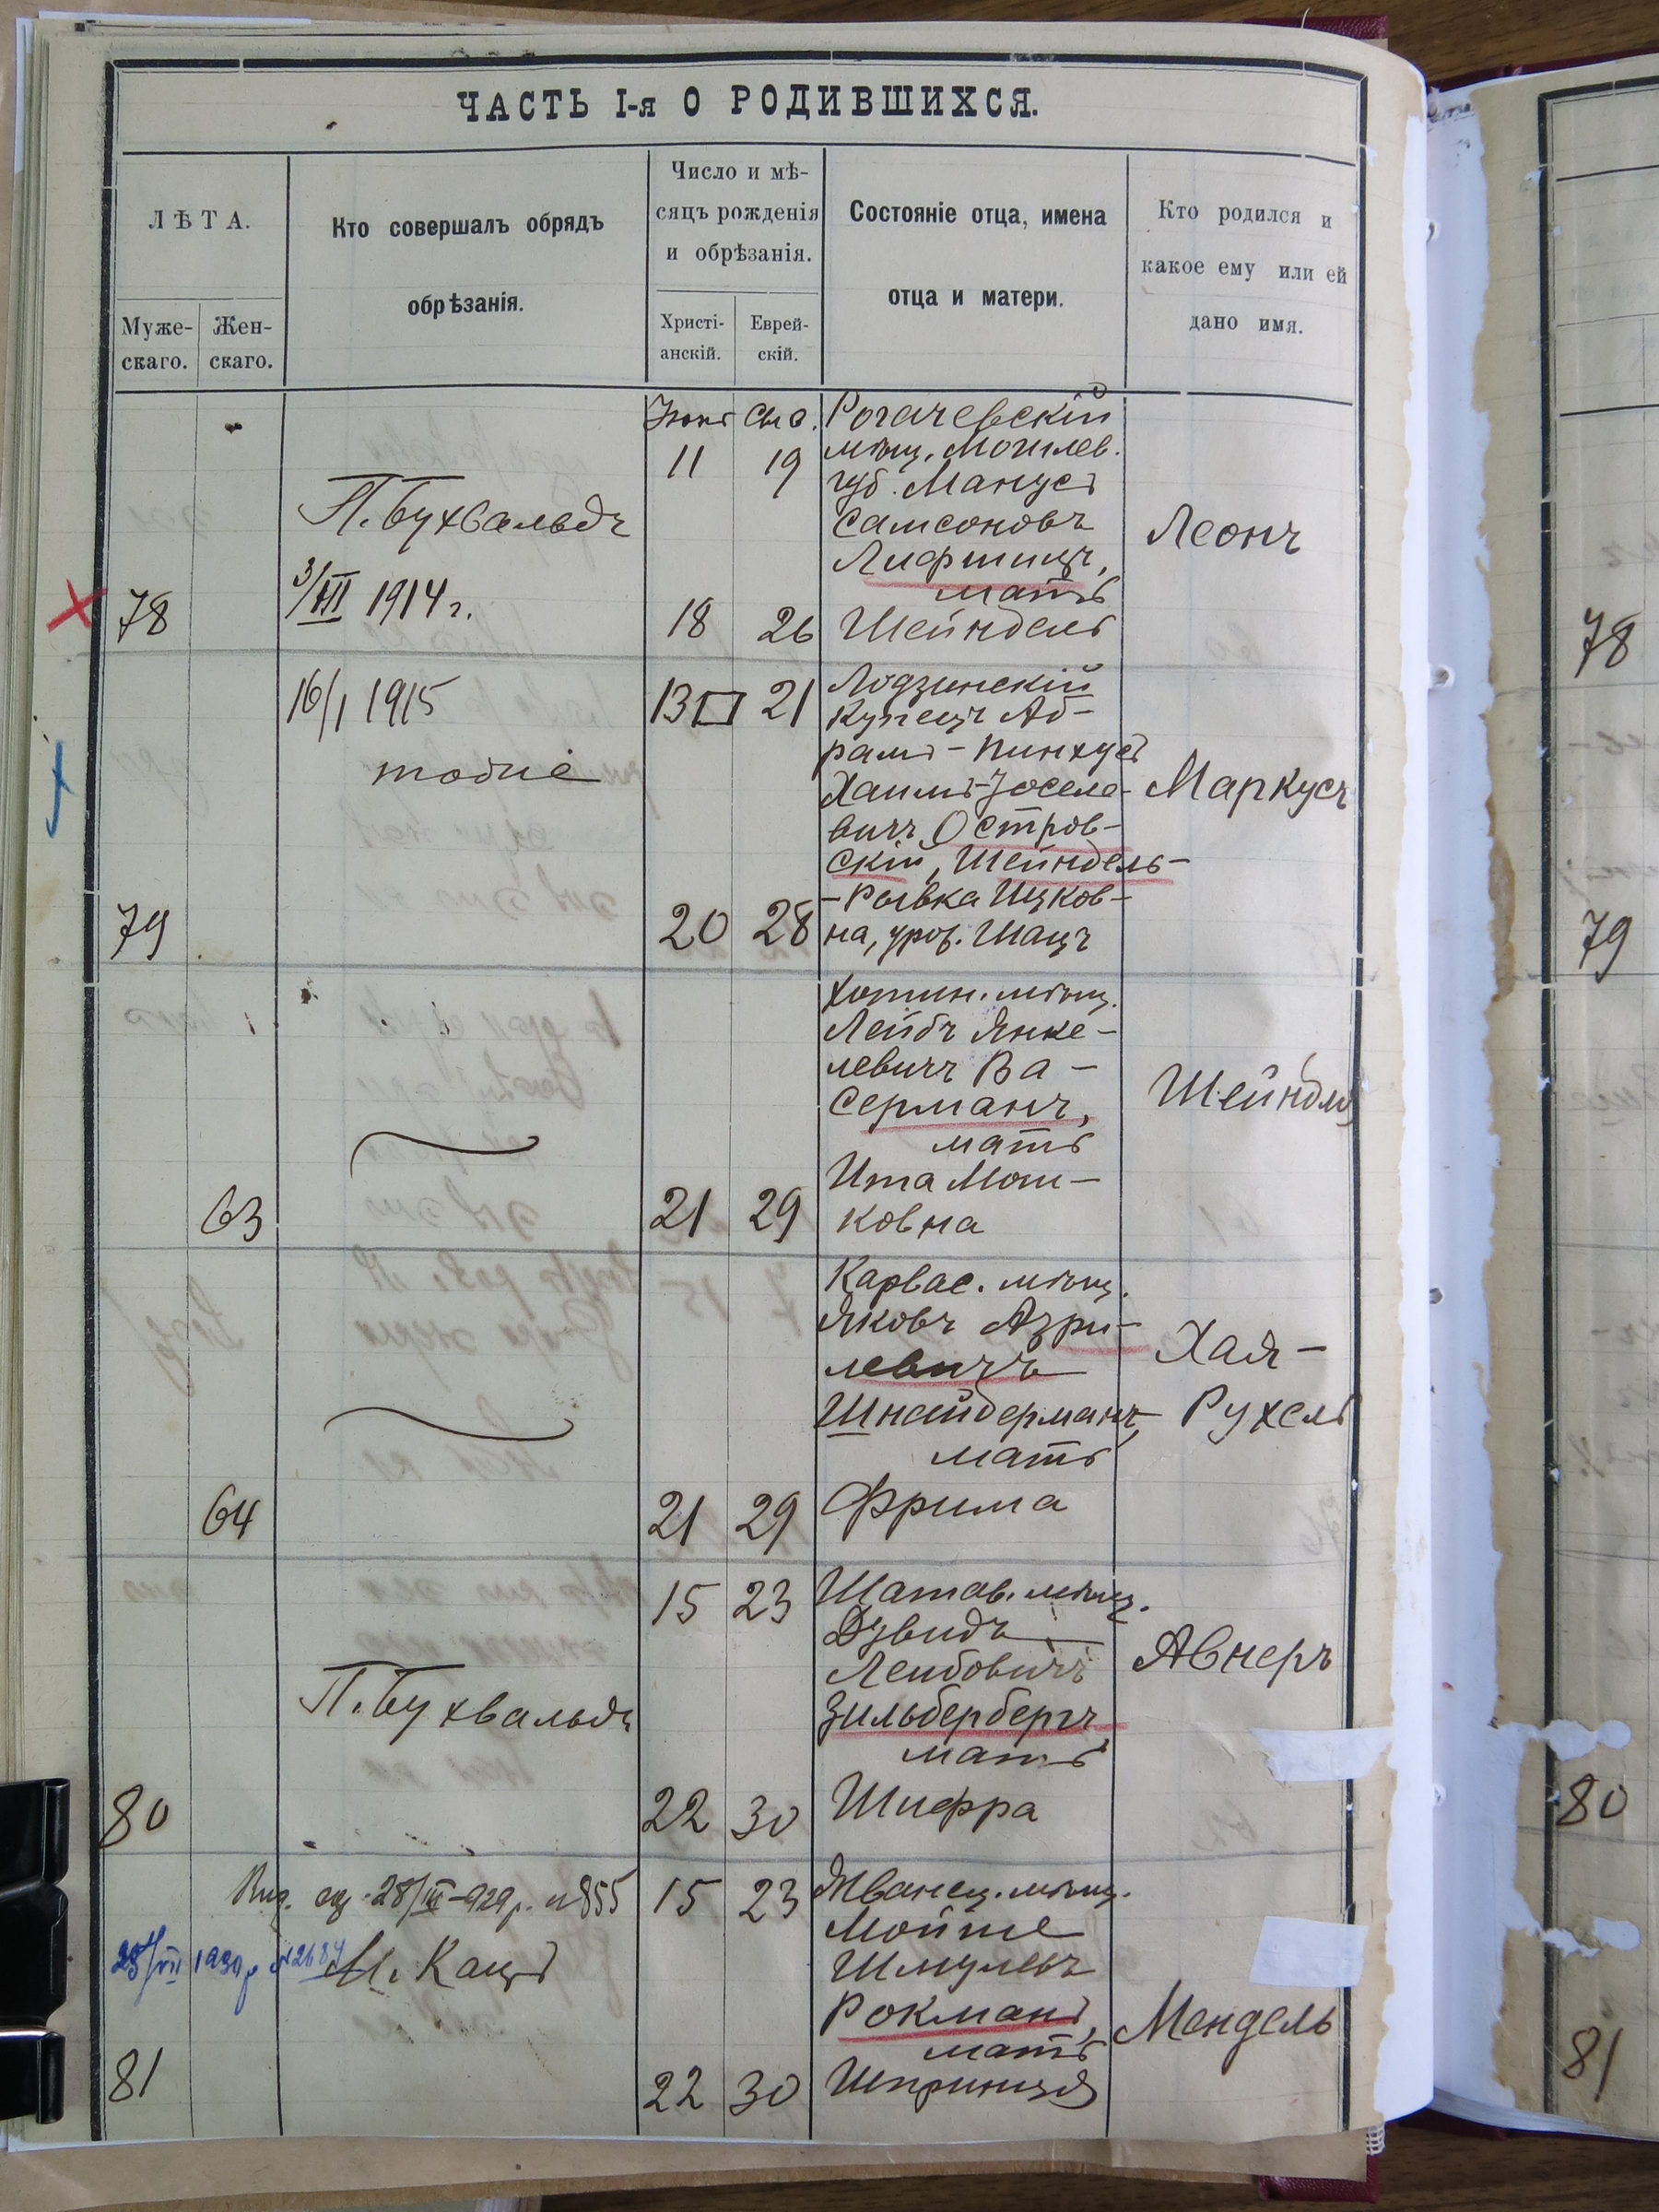 ЧАСТЬ I-я О РОДИВШИХСЯ.
ЛѢТА.
Муже-
скаго.
Жен-
скаго.
Кто совершалъ обрядъ
обрѣзанія.
Число и мѣ-
сяцъ рожденія
и обрѣзанія.
Христі-
анскій.
Еврей-
скій.
Состояніе отца, имена
отца и матери.
Кто родился и
какое ему или ей
дано имя.
78
П. Бухвальдъ
3/III 1914 г.
11 19
18 26
Рогачевскій
мѣщ. Могилев.
губ. Манусъ
Самсоновъ
Лифшицъ,
мать
Шейндель
Леонъ
79
16/I 1915
тодие
13 21
20 28
Лодзинскій
Купецъ Аб-
рамъ-Пинхусъ
Хаимъ-Іоселе-
вичъ Остров-
скій, Шейндель-
-Рывка Ицков-
на, урож. Шацъ
Маркусъ
63
21 29
Хотин. мѣщ.
Лейбъ Янке-
левичъ Ва-
серманъ,
мать
Ита Мош-
ковна
Шейндля
64
21 29
Карвас. мѣщ.
Яковъ Азри-
левичъ
Шнайдерманъ,
мать
Фрима
Хая-
Рухель
80
П. Бухвальдъ
15 23
22 30
Шатав. мѣщ.
Лейбовичъ
Зильбербергъ
мать
Шифра
Авнеръ
28/III-929 р. N855
1930 р N2687
М. Кацъ
81
15 23
22 30
Жванец. мѣщ.
Мойше
Шмулевъ
Рокманъ,
мать
Шпринця
Мендель
78
79
80
81